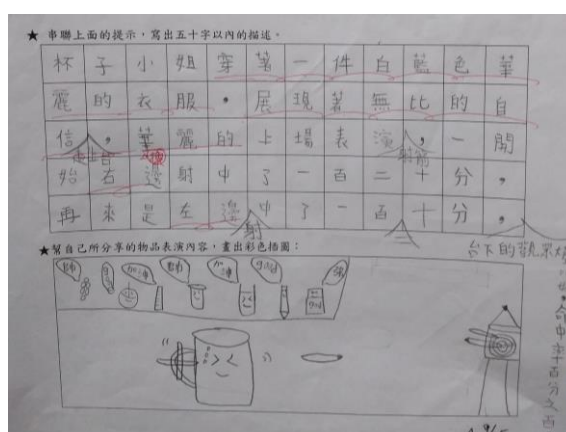 ★ 串聯上面的提示，寫出五十字以內的描述。
杯子小姐穿著一件白藍色華
麗的衣服，展現著無比的自
信，華麗的上場表演，一開
走上台
射箭
始右邊射中了一百二十分，
再來是左邊中了一百十分，
射
二
台下的觀眾
★幫自己所分享的物品表演內容，畫出彩色插圖：
加油
加油
good
命中率百分之百